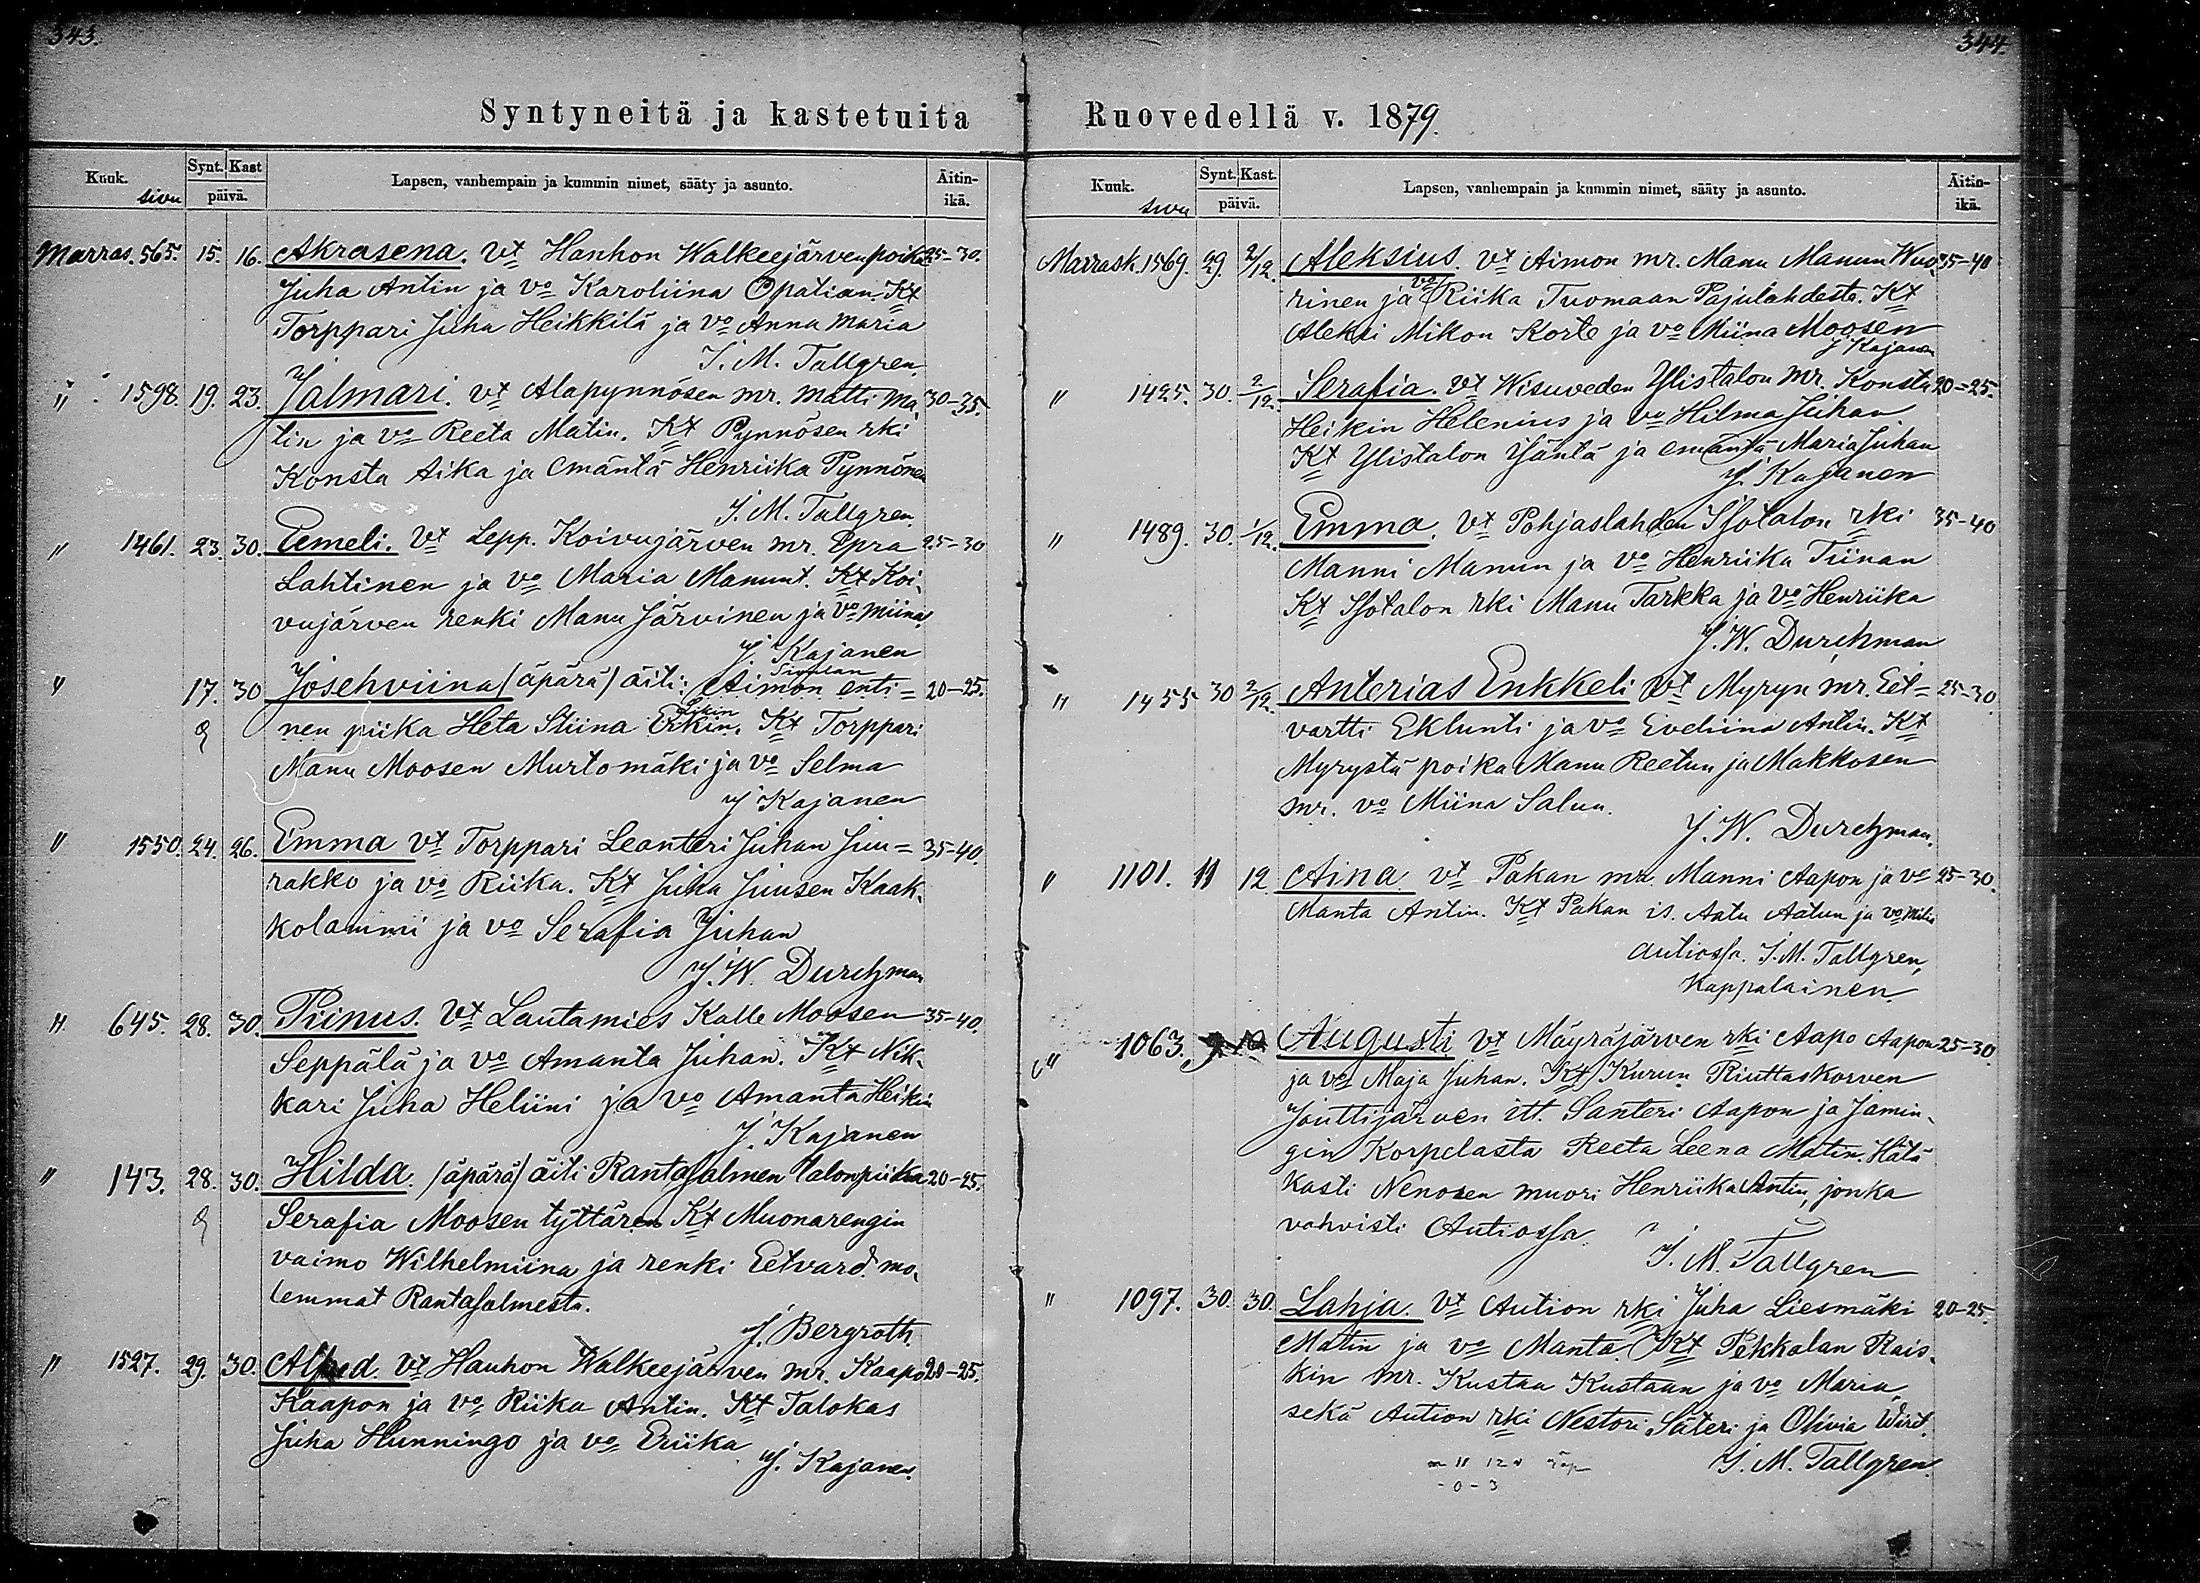 343.
Syntyneitä ja kastetuita
Kuuk. sivu
Synt. Kast
päivä.
Lapsen, vanhempain ja kummin nimet, sääty ja asunto.
Äitin-
ikä.
Marras. 565. 15. 16. Akrasena. vt Hanhon Walkeejärven poika 25-30.
Juha Antin ja vo Karoliina Opatian. Kt
Torppari Juha Heikkilä ja vo Anna Maria
J. M. Tallgren.
" 1598. 19. 23. Jalmari. vt Alapynnösen mr. Matti Ma- 30-35.
tin ja vo Reeta Matin. Kt Pynnösen rki
Konsta Aika ja emäntä Henriika Pynnönen
J. M. Tallgren.
" 1461. 23. 30. Eemeli. vt Lepp. Koivujärven mr. Epra 25-30
Lahtinen ja vo Maria Manunt. Kt Koi-
vujärven renki Manu Järvinen ja vo Miina
J. Kajanen
" 17. 30 Josehviina (äpärä) äiti: Aimon enti= 20-25.
nen piika Heta Stiina Erkin. Kt Torppari
Manu Moosen Murtomäki ja vo Selma
J. Kajanen
" 1550. 24. 26. Emma vt Torppari Leanteri Juhan Juu= 35-40.
rakko ja vo Riika. Kt Juha Juusen Kaak-
kolammi ja vo Serafia Juhan
J. W. Durchman
" 645. 28. 30. Piinus. vt Lautamies Kalle Moosen 35-40.
Seppälä ja vo Amanta Juhan. Kt Nik-
kari Juha Heliini ja vo Amanta Heikin
J. Kajanen
" 143. 28. 30. Hilda. (äpärä) äiti Rantasalmen talonpiika 20-25.
Serafia Moosen tyttären Kt Muonarengin
vaimo Wilhelmiina ja renki Eetvard. mo-
lemmat Rantasalmesta.
J. Bergroth.
" 1527. 29. 30. Alfred. vt Hauhon Walkeejärven mr. Kaapo 20-25.
Kaapon ja vo Riika Antin. Kt Talokas
Juha Hunningo ja vo Eriika
J. Kajanen.
344.
Ruovedellä v. 1879.
Kuuk. sivu
Synt. Kast.
päivä.
Lapsen, vanhempain ja kummin nimet, sääty ja asunto.
Äitin-
ikä.
Marrask. 1569. 29. 2/12. Aleksius. vt Aimon mr. Manu Manun Wuo- 35-40
rinen ja vo Riika Tuomaan Pajulahdesta. Kt
Aleksi Mikon Korte ja vo Miina Moosen
J Kajanen
" 1425. 30. 2/12. Serafia. vt Wisuveden Ylistalon mr. Konsta 20=25.
Heikin Helenius ja vo Hilma Juhan
Kt Ylistalon Isäntä ja emäntä Maria Juhan
J. Kajanen
" 1489. 30. 1/12. Emma. vt Pohjaslahden Isotalon rki 35-40
Manni Manun ja vo Henriika Tiinan
Kt Isotalon rki Manu Tarkka ja vo Henriika
J. W. Durchman
" 1455 30 2/12. Anterias Enkkeli vt Myryn mr. Eet= 25-30.
vartti Eklunti ja vo Eveliina Antin. Kt
Myrystä poika Manu Reetun ja Makkosen
mr. vo Miina Salun.
J. W. Durchman.
" 1101. 11 12 Aina vt Pakan mr. Manni Aapon ja vo 25-30.
Manta Antin. Kt Pakan is. Aatu Aatun ja vo
Autiossa. J. M. Tallgren,
Kappalainen.
" 1063. 9. 10 Augusti vt Mäyräjärven rki Aapo Aapon 25-30
ja vo Maja Juhan. Kt Kurun Riuttaskorven
Jouttijärven itt. Santeri Aapon ja Jämin-
gin Korpelasta Reeta Leena Matin. Hätä-
kasti Nenosen muori Henriika Antin, jonka
vahvisti Autiossa
J. M. Tallgren
" 1097. 30. 30. Lahja. vt Aution rki Juha Liesmäki 20-25.
Matin ja vo Manta. Kt Pekkalan Rais-
kin mr. Kustaa Kustaan ja vo Maria,
sekä Aution rki Nestori Säteri ja Olivia Wirt.
J. M. Tallgren.